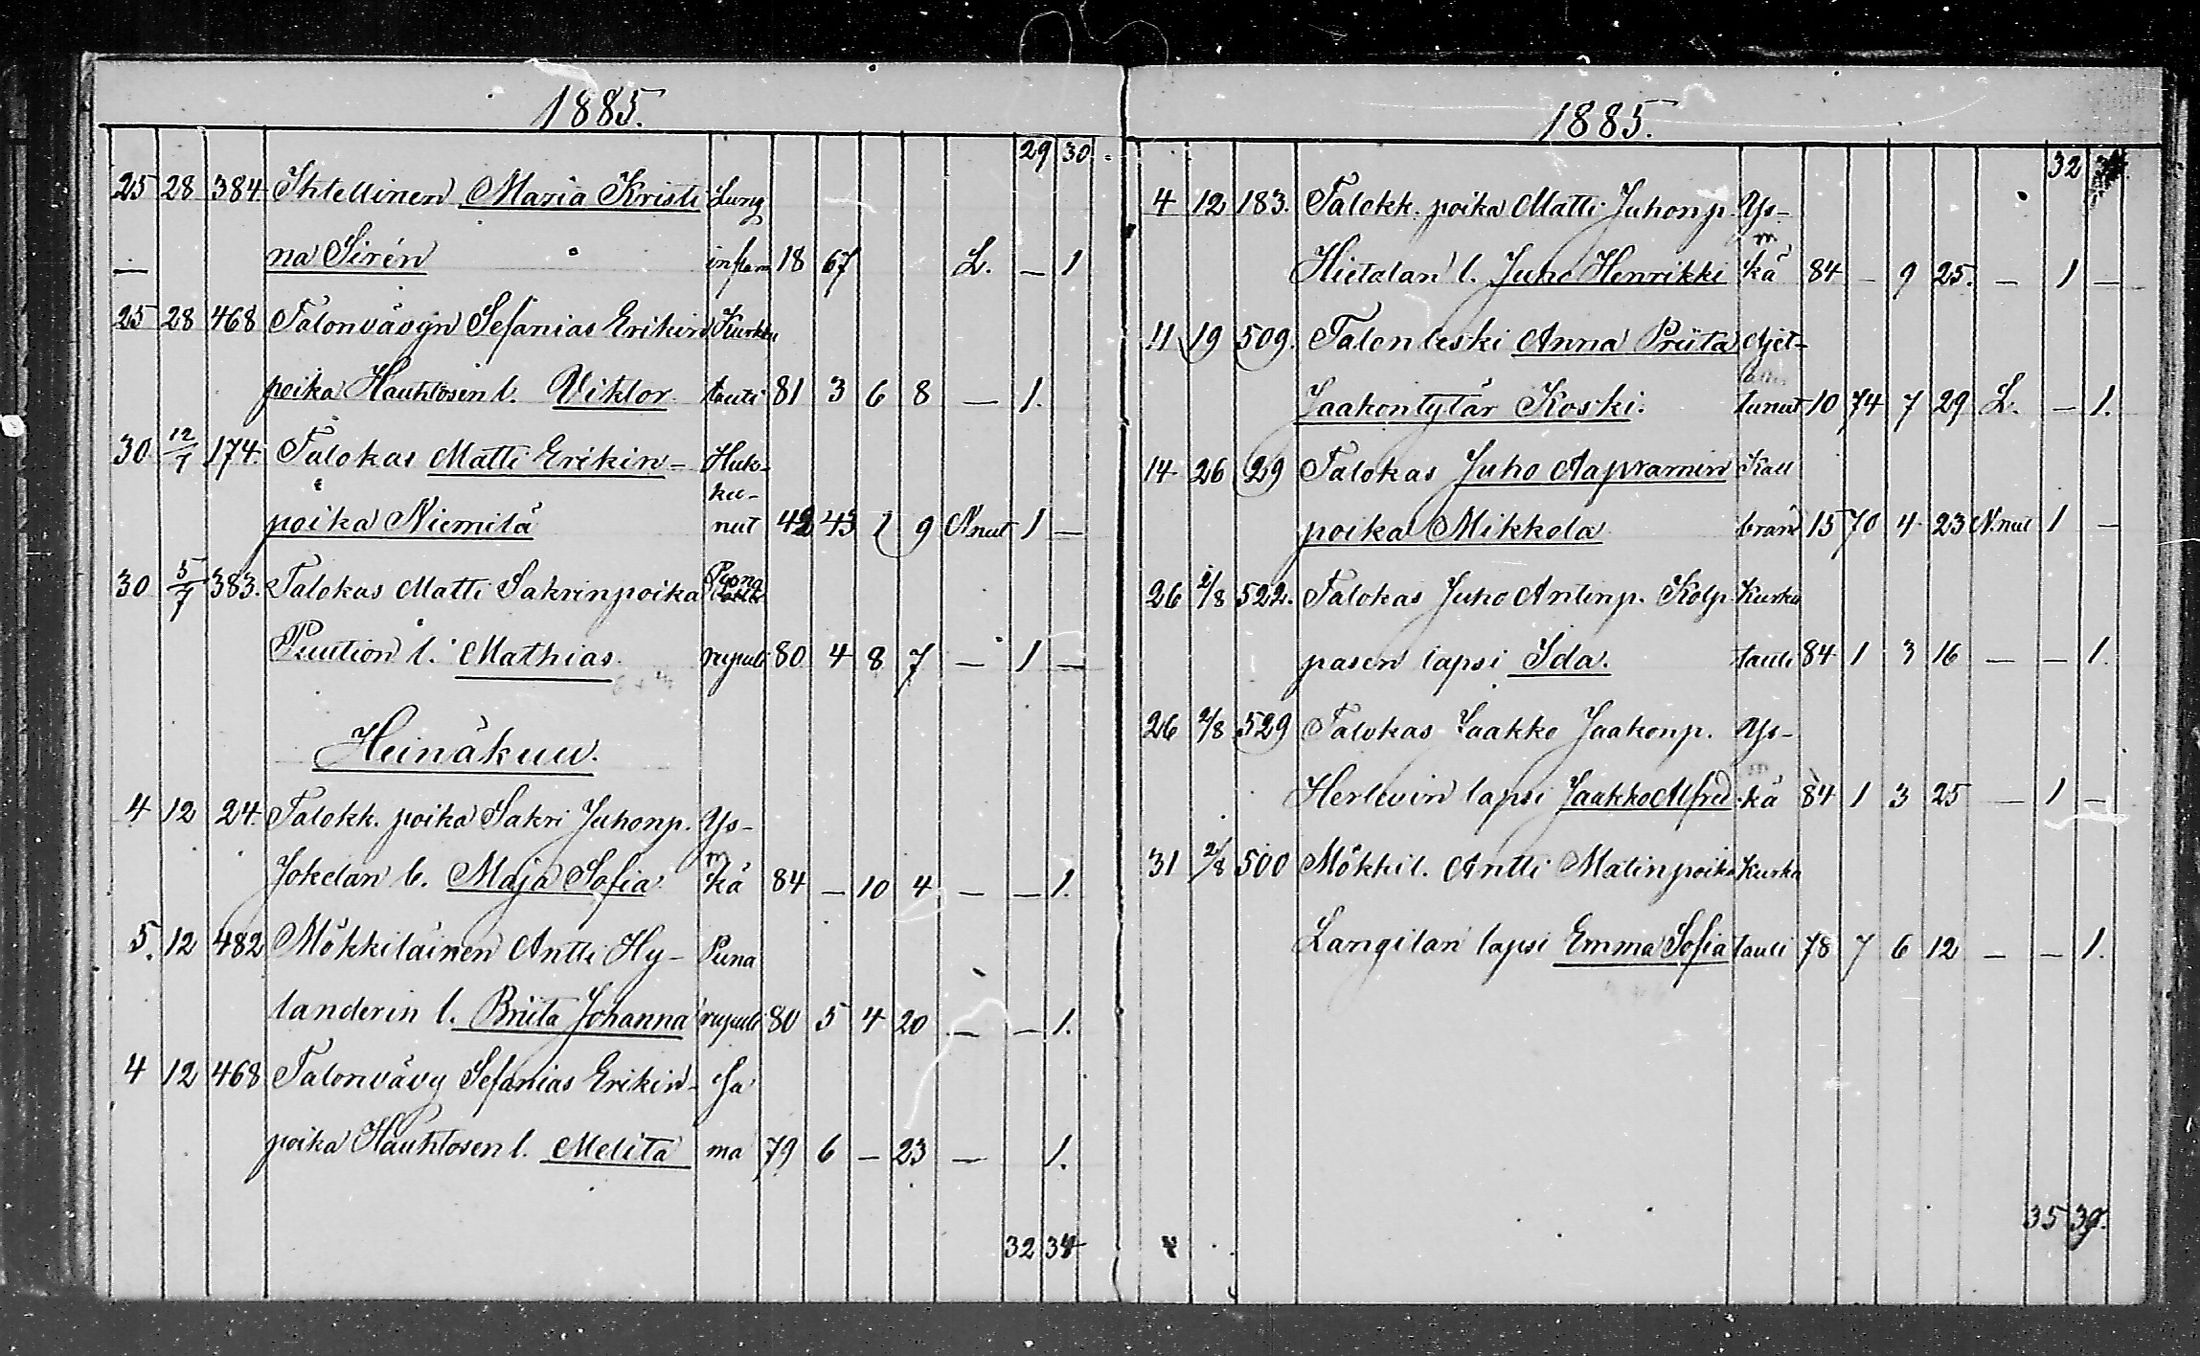 1885.
29 30
25 28 384. Ihtellinen Maria Kristi Lung
— na Sirén inflam 18 67 L. — 1
25 28 468 Talonvävyn Sefanias Erikin Kurkku
poika Hauhtosen l. Viktor tauti 81 3 6 8 — 1.
30 12/7 174. Talokas Matti Erikin- Huk-
ku-
poika Niemilä nut 42 43 2 9 N.nut 1 —
30 5/7 383. Talokas Matti Sakrinpoika Puna
Puution l. Mathias rupuli 80 4 8 7 — 1 —
Heinäkuu.
4 12 24. Talokk. poika Sakri Juhonp. Ys-
Jokelan l. Maja Sofia kä 84 — 10 4 — — 1.
5. 12 482 Mökkiläinen Antti Hy- Puna
landerin l. Briita Johanna rupuli 80 5 4 20 — — 1.
4 12 468 Talonvävy Sefanias Erikin- Sa
poika Hauhtosen l. Melita ma 79 6 — 23 — 1.
32 34
1885.
32 34
4 12 183. Talokk. poika Matti Juhonp. Ys-
Hietalan l. Juho Henrikki kä 84 — 9 25. — 1 —
11 19 509. Talonleski Anna Priita Ajet-
Jaakontytär Koski. tunut 10 74 7 29 L. — 1.
14 26 29 Talokas Juho Aapramin Kall
poika Mikkola brand 15 70 4 23 N.nut 1 —
26 2/8 522. Talokas Juho Antinp. Kolp Kurku
pasen lapsi Ida. tauti 84 1 3 16 — — 1.
26 2/8 529 Talokas Jaakko Jaakonp. Ys-
Herlevin lapsi Jaakko Alfred kä 84 1 3 25 — 1 —
31 2/8 500 Mökkil. Antti Matinpoika Kurku
Langilan lapsi Emma Sofia tauti 78 7 6 12 — — 1.
35 39.